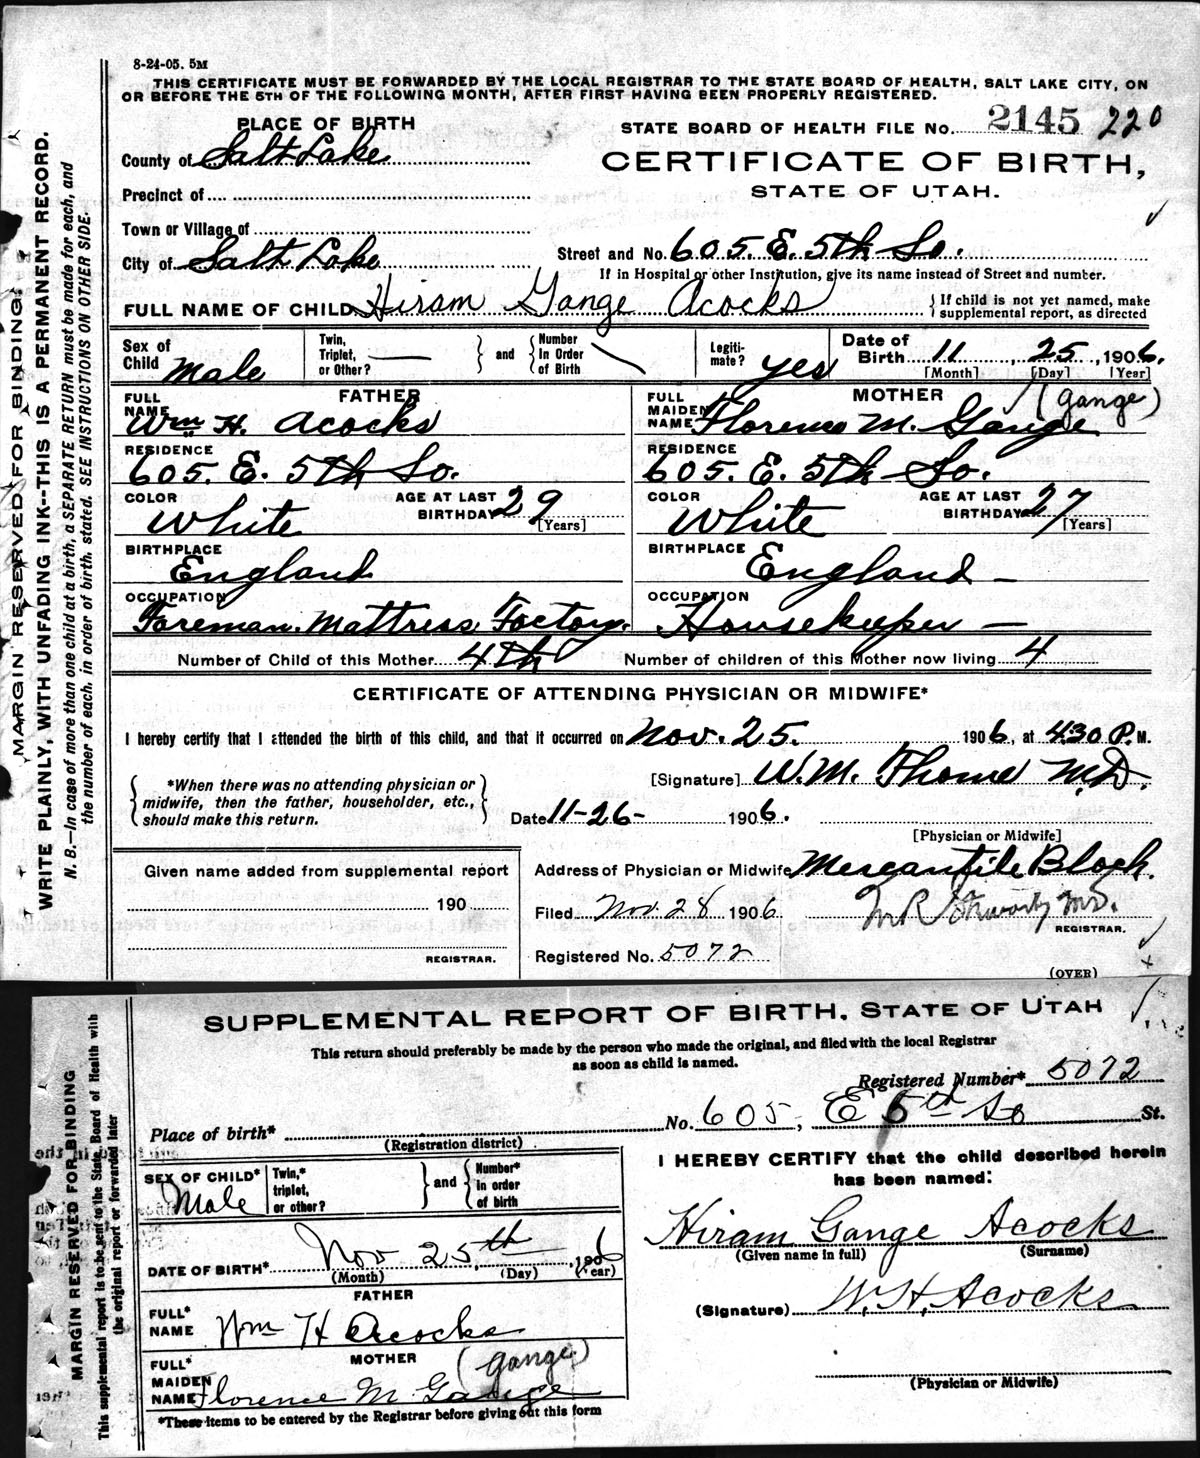 8-24-05. 5M
THIS CERTIFICATE MUST BE FORWARDED BY THE LOCAL REGISTRAR TO THE STATE BOARD OF HEALTH, SALT LAKE CITY, ON
OR BEFORE THE 5TH OF THE FOLLOWING MONTH, AFTER FIRST HAVING BEEN PROPERLY REGISTERED.
PLACE OF BIRTH
STATE BOARD OF HEALTH FILE No. 2145 220
County of Salt Lake
CERTIFICATE OF BIRTH,
STATE OF UTAH.
Precinct of
Town or Village of
City of Salt Lake
Street and No. 605. E. 5th So.
If in Hospital or other Institution, give its name instead of Street and number.
FULL NAME OF CHILD Hiram Gange Acocks
{ If child is not yet named, make
supplemental report, as directed
Sex of Child Male
Twin, Triplet, or Other? —
and
Number In Order of Birth
Legiti-mate? yes
Date of Birth 11, 25, 1906.
[Month] [Day] [Year]
FATHER
FULL NAME Wm H. Acocks
RESIDENCE
605. E. 5th So.
COLOR White
AGE AT LAST BIRTHDAY 29
[Years]
BIRTHPLACE
England
OCCUPATION
Foreman. Mattress Factory.
MOTHER
FULL MAIDEN NAME Florence M. Gange (Gange)
RESIDENCE
605. E. 5th So.
COLOR White
AGE AT LAST BIRTHDAY 27
[Years]
BIRTHPLACE England —
OCCUPATION
Housekeeper —
Number of Child of this Mother 4th
Number of children of this Mother now living 4
CERTIFICATE OF ATTENDING PHYSICIAN OR MIDWIFE*
I hereby certify that I attended the birth of this child, and that it occurred on Nov. 25. 1906, at 430 P.M.
*When there was no attending physician or
midwife, then the father, householder, etc.,
should make this return.
[Signature] W. M. Thome M.D.
Date 11-26- 1906.
[Physician or Midwife]
Given name added from supplemental report
190
REGISTRAR.
Address of Physician or Midwife Mercantile Block.
Filed Nov. 28 1906
M.D.
REGISTRAR.
Registered No. 5072
(OVER)
MARGIN RESERVED FOR BINDING.
WRITE PLAINLY, WITH UNFADING INK--THIS IS A PERMANENT RECORD.
N. B.—In case of more than one child at a birth, a SEPARATE RETURN must be made for each, and
the number of each, in order of birth, stated. SEE INSTRUCTIONS ON OTHER SIDE.
SUPPLEMENTAL REPORT OF BIRTH, STATE OF UTAH
This return should preferably be made by the person who made the original, and filed with the local Registrar
as soon as child is named.
Registered Number* 5072
Place of birth* No. 605, E 5th So St.
(Registration district)
SEX OF CHILD* Male
Twin,* triplet, or other?
and
Number* in order of birth
DATE OF BIRTH* Nov 25th, 1906
(Month) (Day) (Year)
FATHER
FULL* NAME Wm H Acocks
MOTHER
FULL* MAIDEN NAME Florence M Gange (Gange)
*These items to be entered by the Registrar before giving out this form
I HEREBY CERTIFY that the child described herein
has been named:
Hiram Gange Acocks
(Given name in full) (Surname)
(Signature) W. H. Acocks
(Physician or Midwife)
MARGIN RESERVED FOR BINDING
This supplemental report is to be sent to the State Board of Health with
the original report or forwarded later